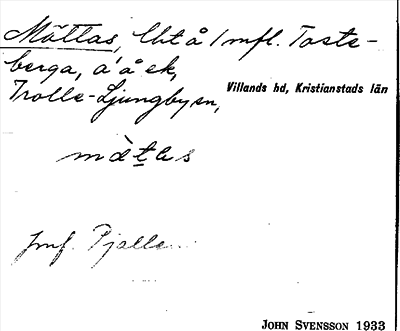 Måttas, lht å 1 mfl. Toste-
berga, a' å ek,
Trolle-Ljungby sn,
Villands hd, Kristianstads län
màtas
Jmf. Pjalle
JOHN SVENSSON 1933